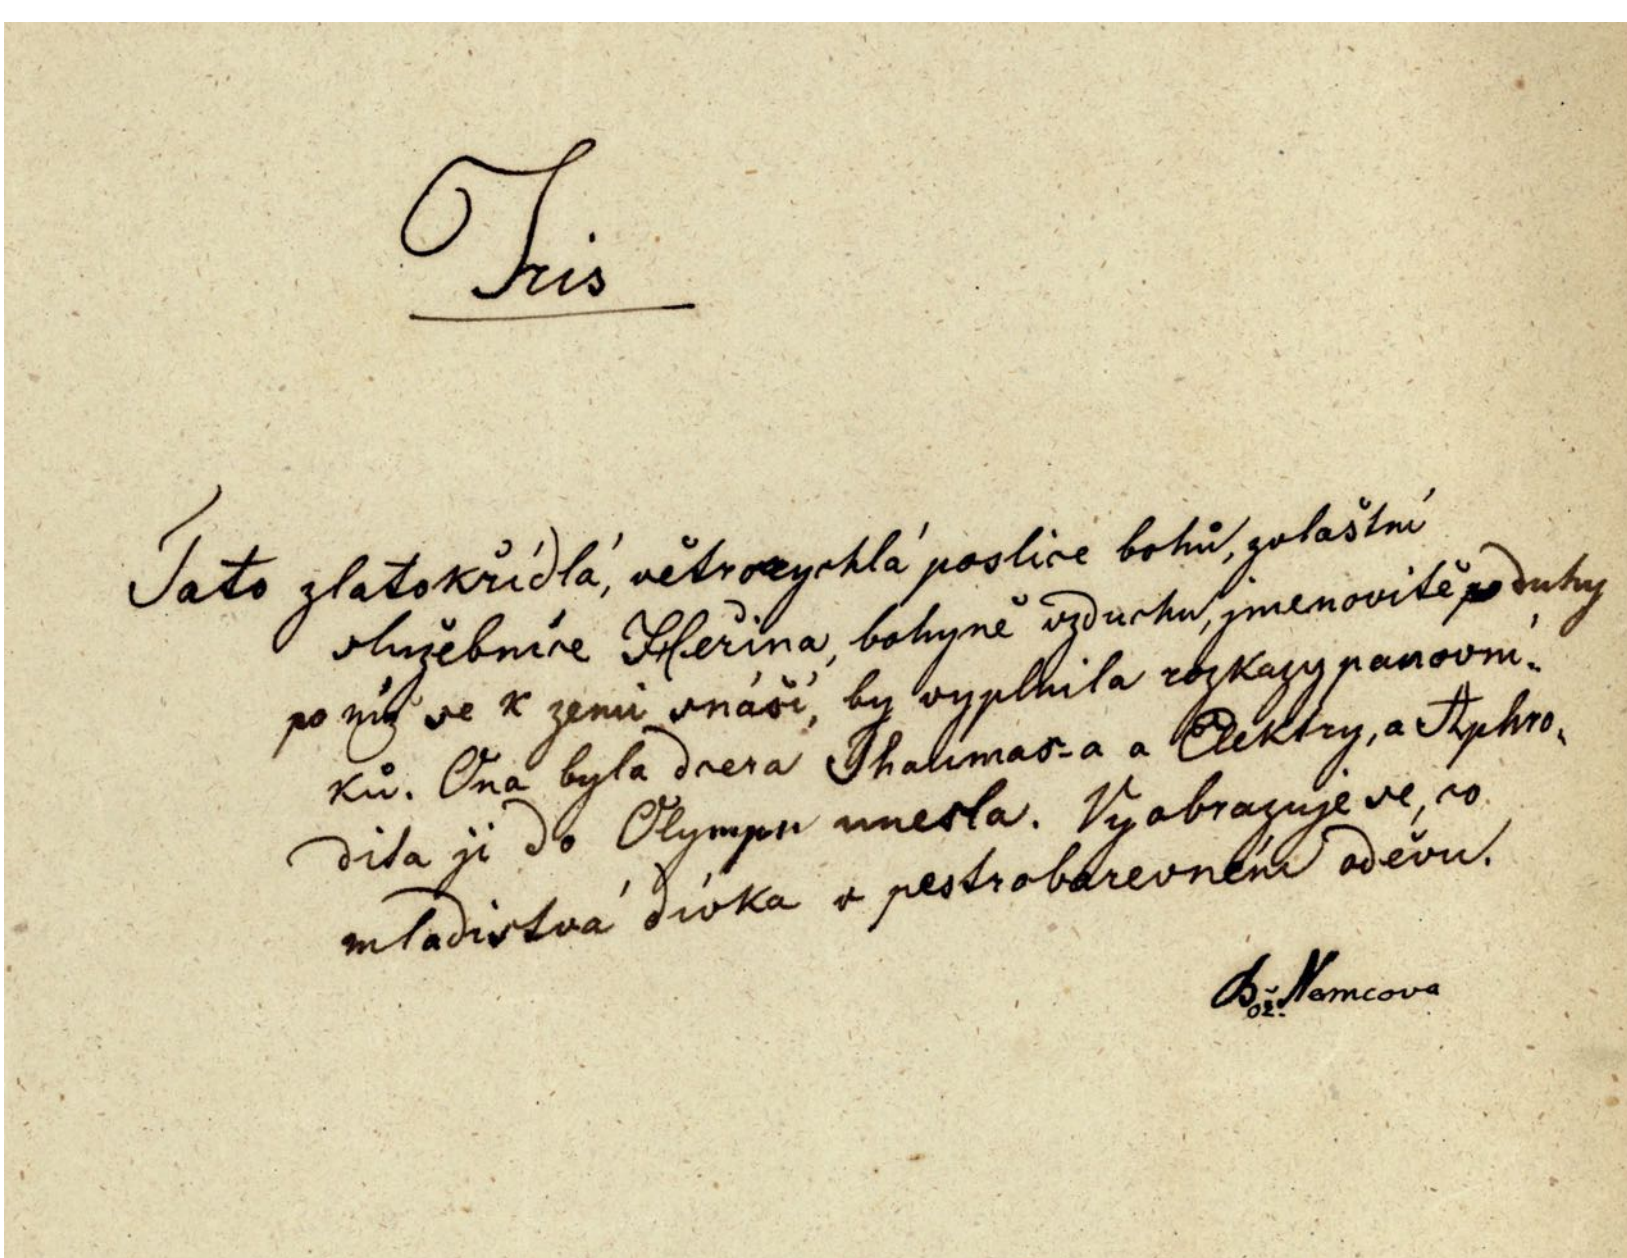 Iris
Tato zlatokřídlá, větrorychlá poslice bohů, zvlaštní
služebnice Heřina, bohyně vzduchu, jmenovitě duhy
po níž se k zemi snáší, by vyplnila rozkazy panovní-
ků. Ona byla dcera Thaumas-a a Elektry, a Aphro-
dita ji do Olympu unesla. Vyobrazuje se, co
mladistvá dívka v pestrobarevném oděvu.
Bož. Němcova